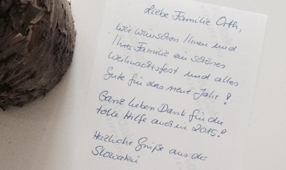 Liebe Familie Orth,
wir wünschen Ihnen und
Ihre Familie ein schönes
Weihnachtsfest und alles
Gute für das neue Jahr!
Ganz lieben Dank für die
tolle Hilfe auch in 2015!
Herzliche Grüße aus der
Slowakei